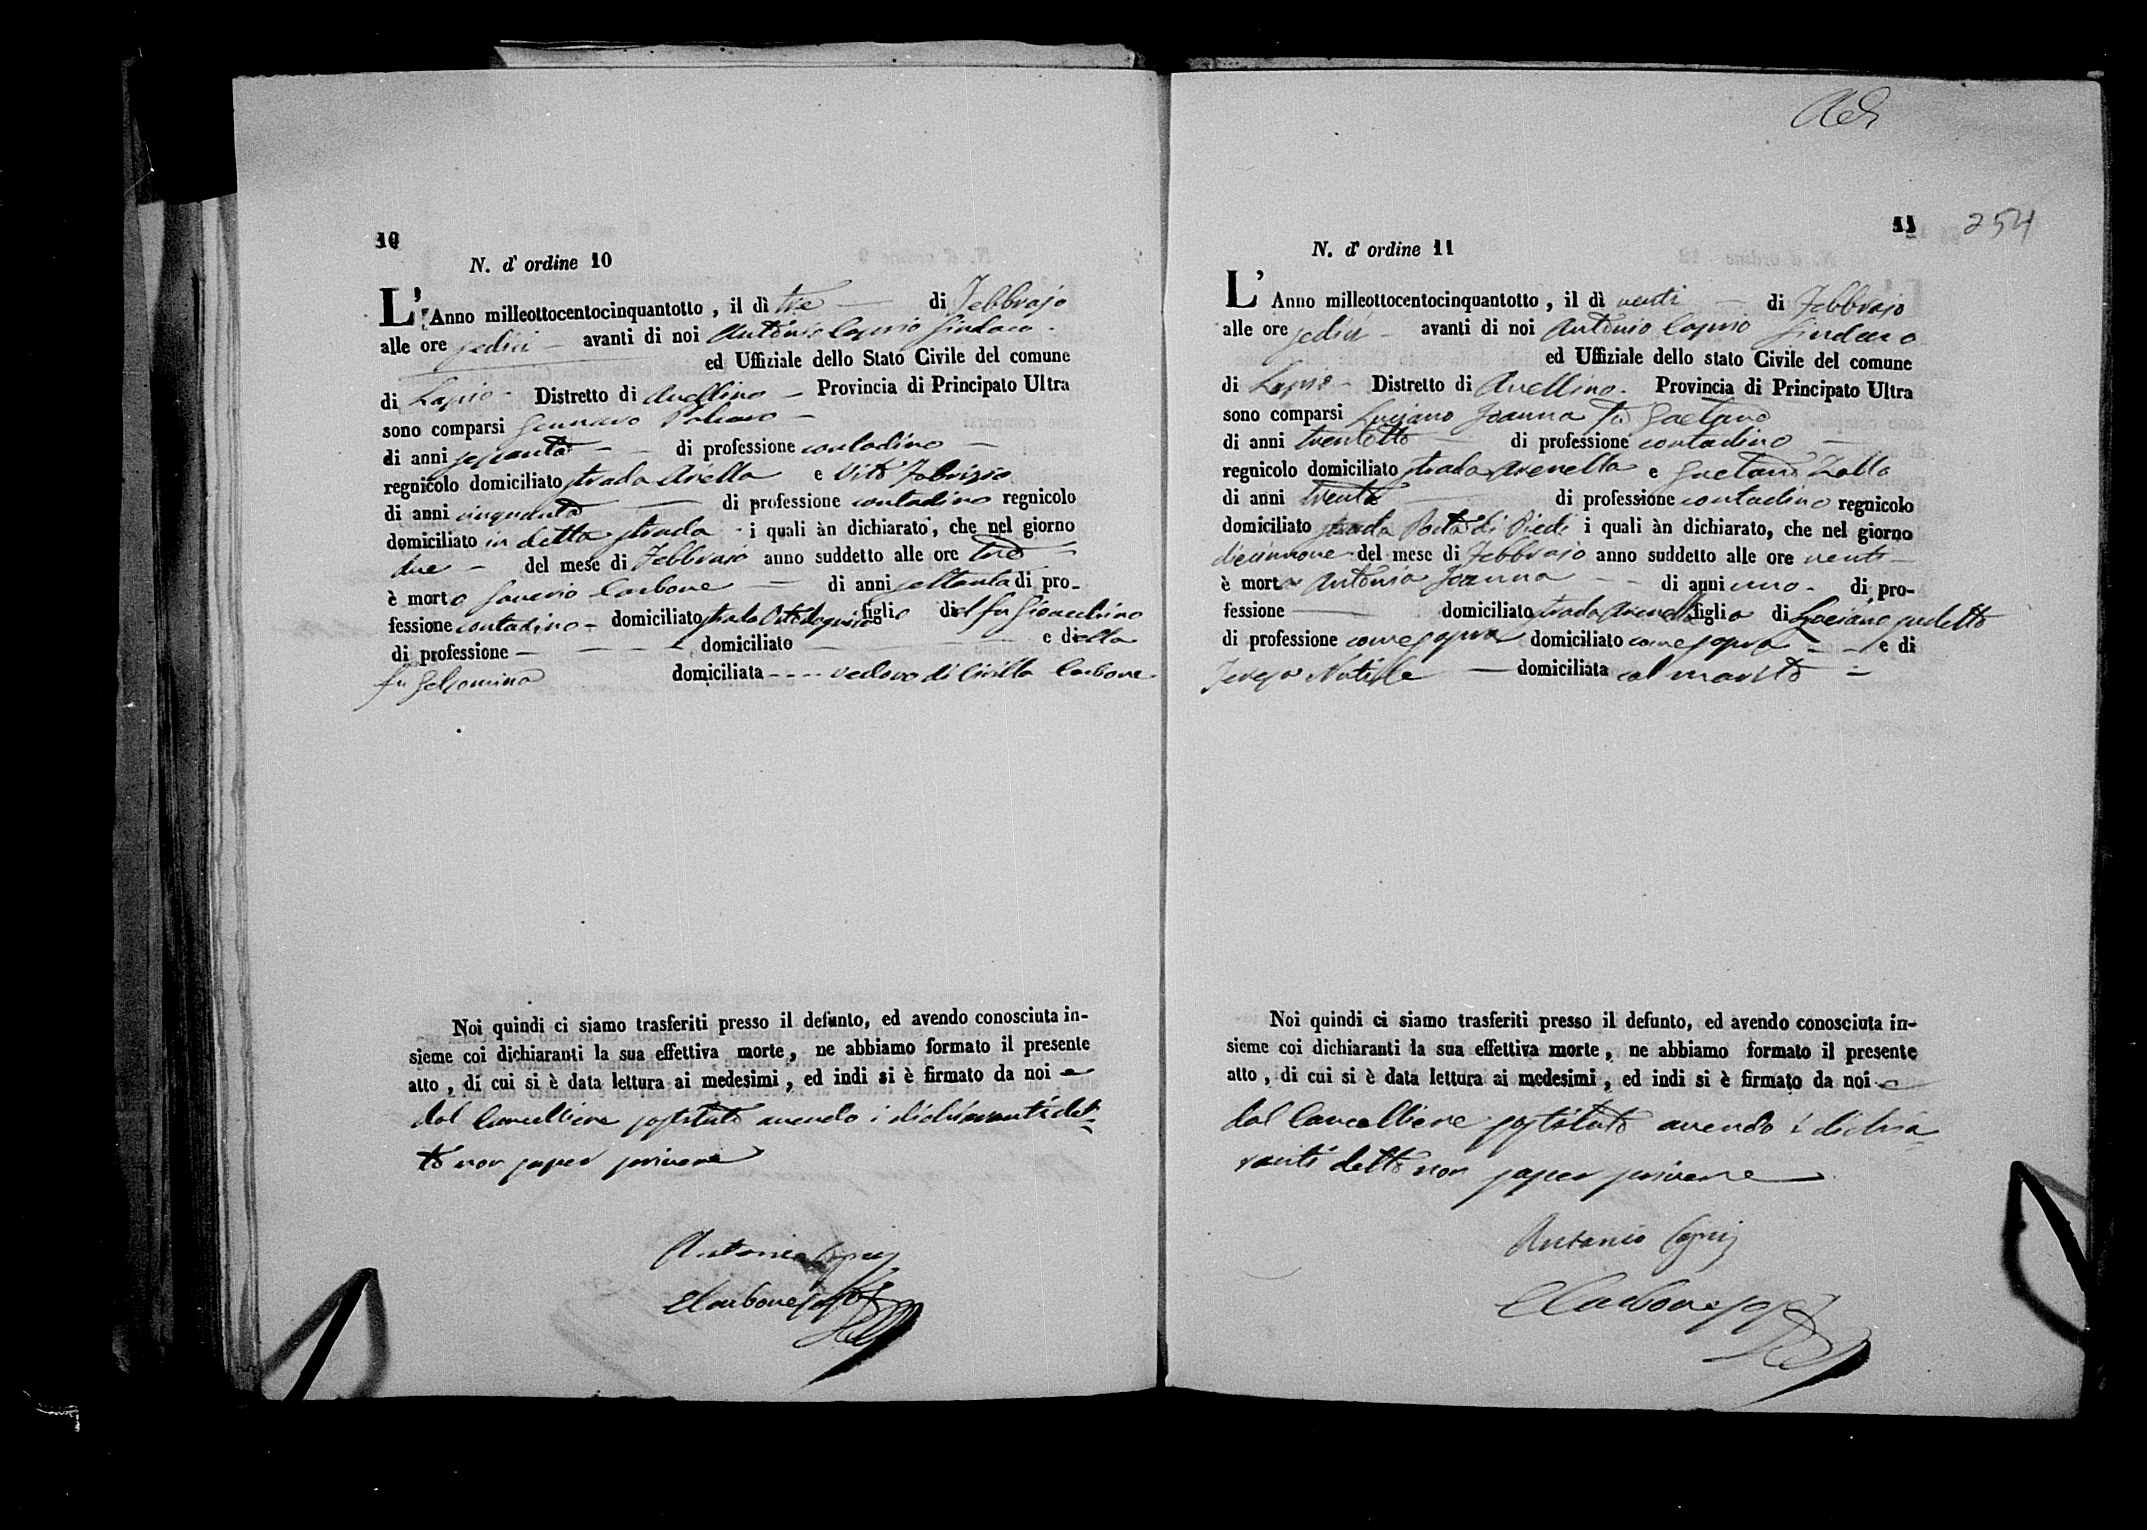 10
N. d' ordine 10
L' Anno milleottocentocinquantotto, il dì tre di Febbrajo
alle ore sedici avanti di noi Antonio Caprio Sindaco
ed Uffiziale dello Stato Civile del comune
di Lapio Distretto di Avellino Provincia di Principato Ultra
sono comparsi Gennaro
di anni sessanta di professione contadino
regnicolo domiciliato strada e Vito Fabrizio
di anni cinquanta di professione contadino regnicolo
domiciliato in detta strada i quali àn dichiarato, che nel giorno
due del mese di Febbraio anno suddetto alle ore tre
è morto Saverio Carbone di anni settanta di pro-
fessione contadino domiciliato strada figlio del fu Gioacchino
di professione domiciliato e della
fu Gelsomina domiciliata vedovo di Civilla Carbone
Noi quindi ci siamo trasferiti presso il defunto, ed avendo conosciuta in-
sieme coi dichiaranti la sua effettiva morte, ne abbiamo formato il presente
atto, di cui si è data lettura ai medesimi, ed indi si è firmato da noi e
dal Cancelliere sostituto avendo i dichiaranti det-
to non saper scrivere
Antonio Caprio
CCarbone sost
Adi
11 254
N. d' ordine 11
L' Anno milleottocentocinquantotto, il dì venti di Febbrajo
alle ore sedici avanti di noi Antonio Caprio Sindaco
ed Uffiziale dello stato Civile del comune
di Lapio Distretto di Avellino Provincia di Principato Ultra
sono comparsi Luciano Joanna fu Gaetano
di anni trentotto di professione contadino
regnicolo domiciliato strada Arenella e Gaetano Zollo
di anni trenta di professione contadino regnicolo
domiciliato strada Porta di Piedi i quali àn dichiarato, che nel giorno
diecinnove del mese di Febbraio anno suddetto alle ore venti
è morta Antonia Joanna di anni uno di pro-
fessione domiciliato strada Arenella figlia di Luciano sudetto
di professione come sopra domiciliato come sopra e di
Teresa Notile domiciliata col marito
Noi quindi ci siamo trasferiti presso il defunto, ed avendo conosciuta in-
sieme coi dichiaranti la sua effettiva morte, ne abbiamo formato il presente
atto, di cui si è data lettura ai medesimi, ed indi si è firmato da noi e
dal Cancelliere sostituto avendo i dichia-
ranti detto non saper scrivere
Antonio Caprio
CCarbone sost